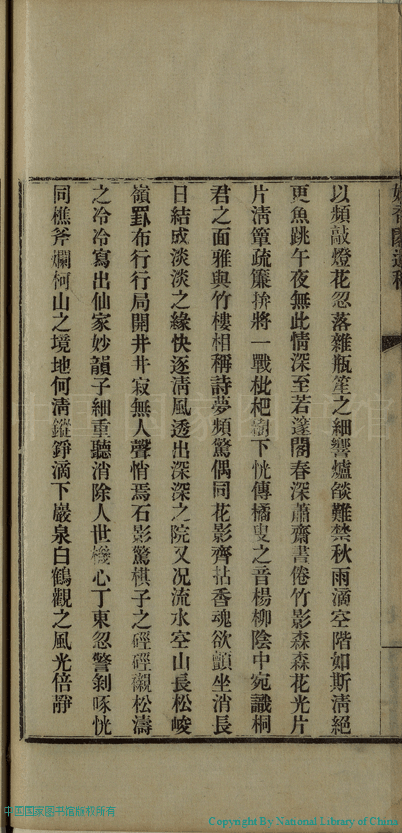 以頻敲燈花忽落雜瓶笙之細響爐燄難禁秋雨滴空階如斯淸絕
更魚跳午夜無此情深至若邃閣春深蕭齋書倦竹影森森花光片
片淸簟疏簾拚將一戰枇杷樹下恍傳橘叟之音楊柳陰中宛識桐
君之面雅與竹樓相稱詩夢頻驚偶同花影齊拈香魂欲顫坐消長
日結成淡淡之緣快逐淸風透出深深之院又况流水空山長松峻
嶺罫布行行局開井井寂無人聲悄焉石影驚棋子之硜硜襯松濤
之冷冷寫出仙家妙韻子細重聽消除人世機心丁東忽警剝啄恍
同樵斧爛柯山之境地何淸鏦錚滴下巖泉白鶴觀之風光倍靜
中国国家图书馆版权所有
Copyright By National Library of China